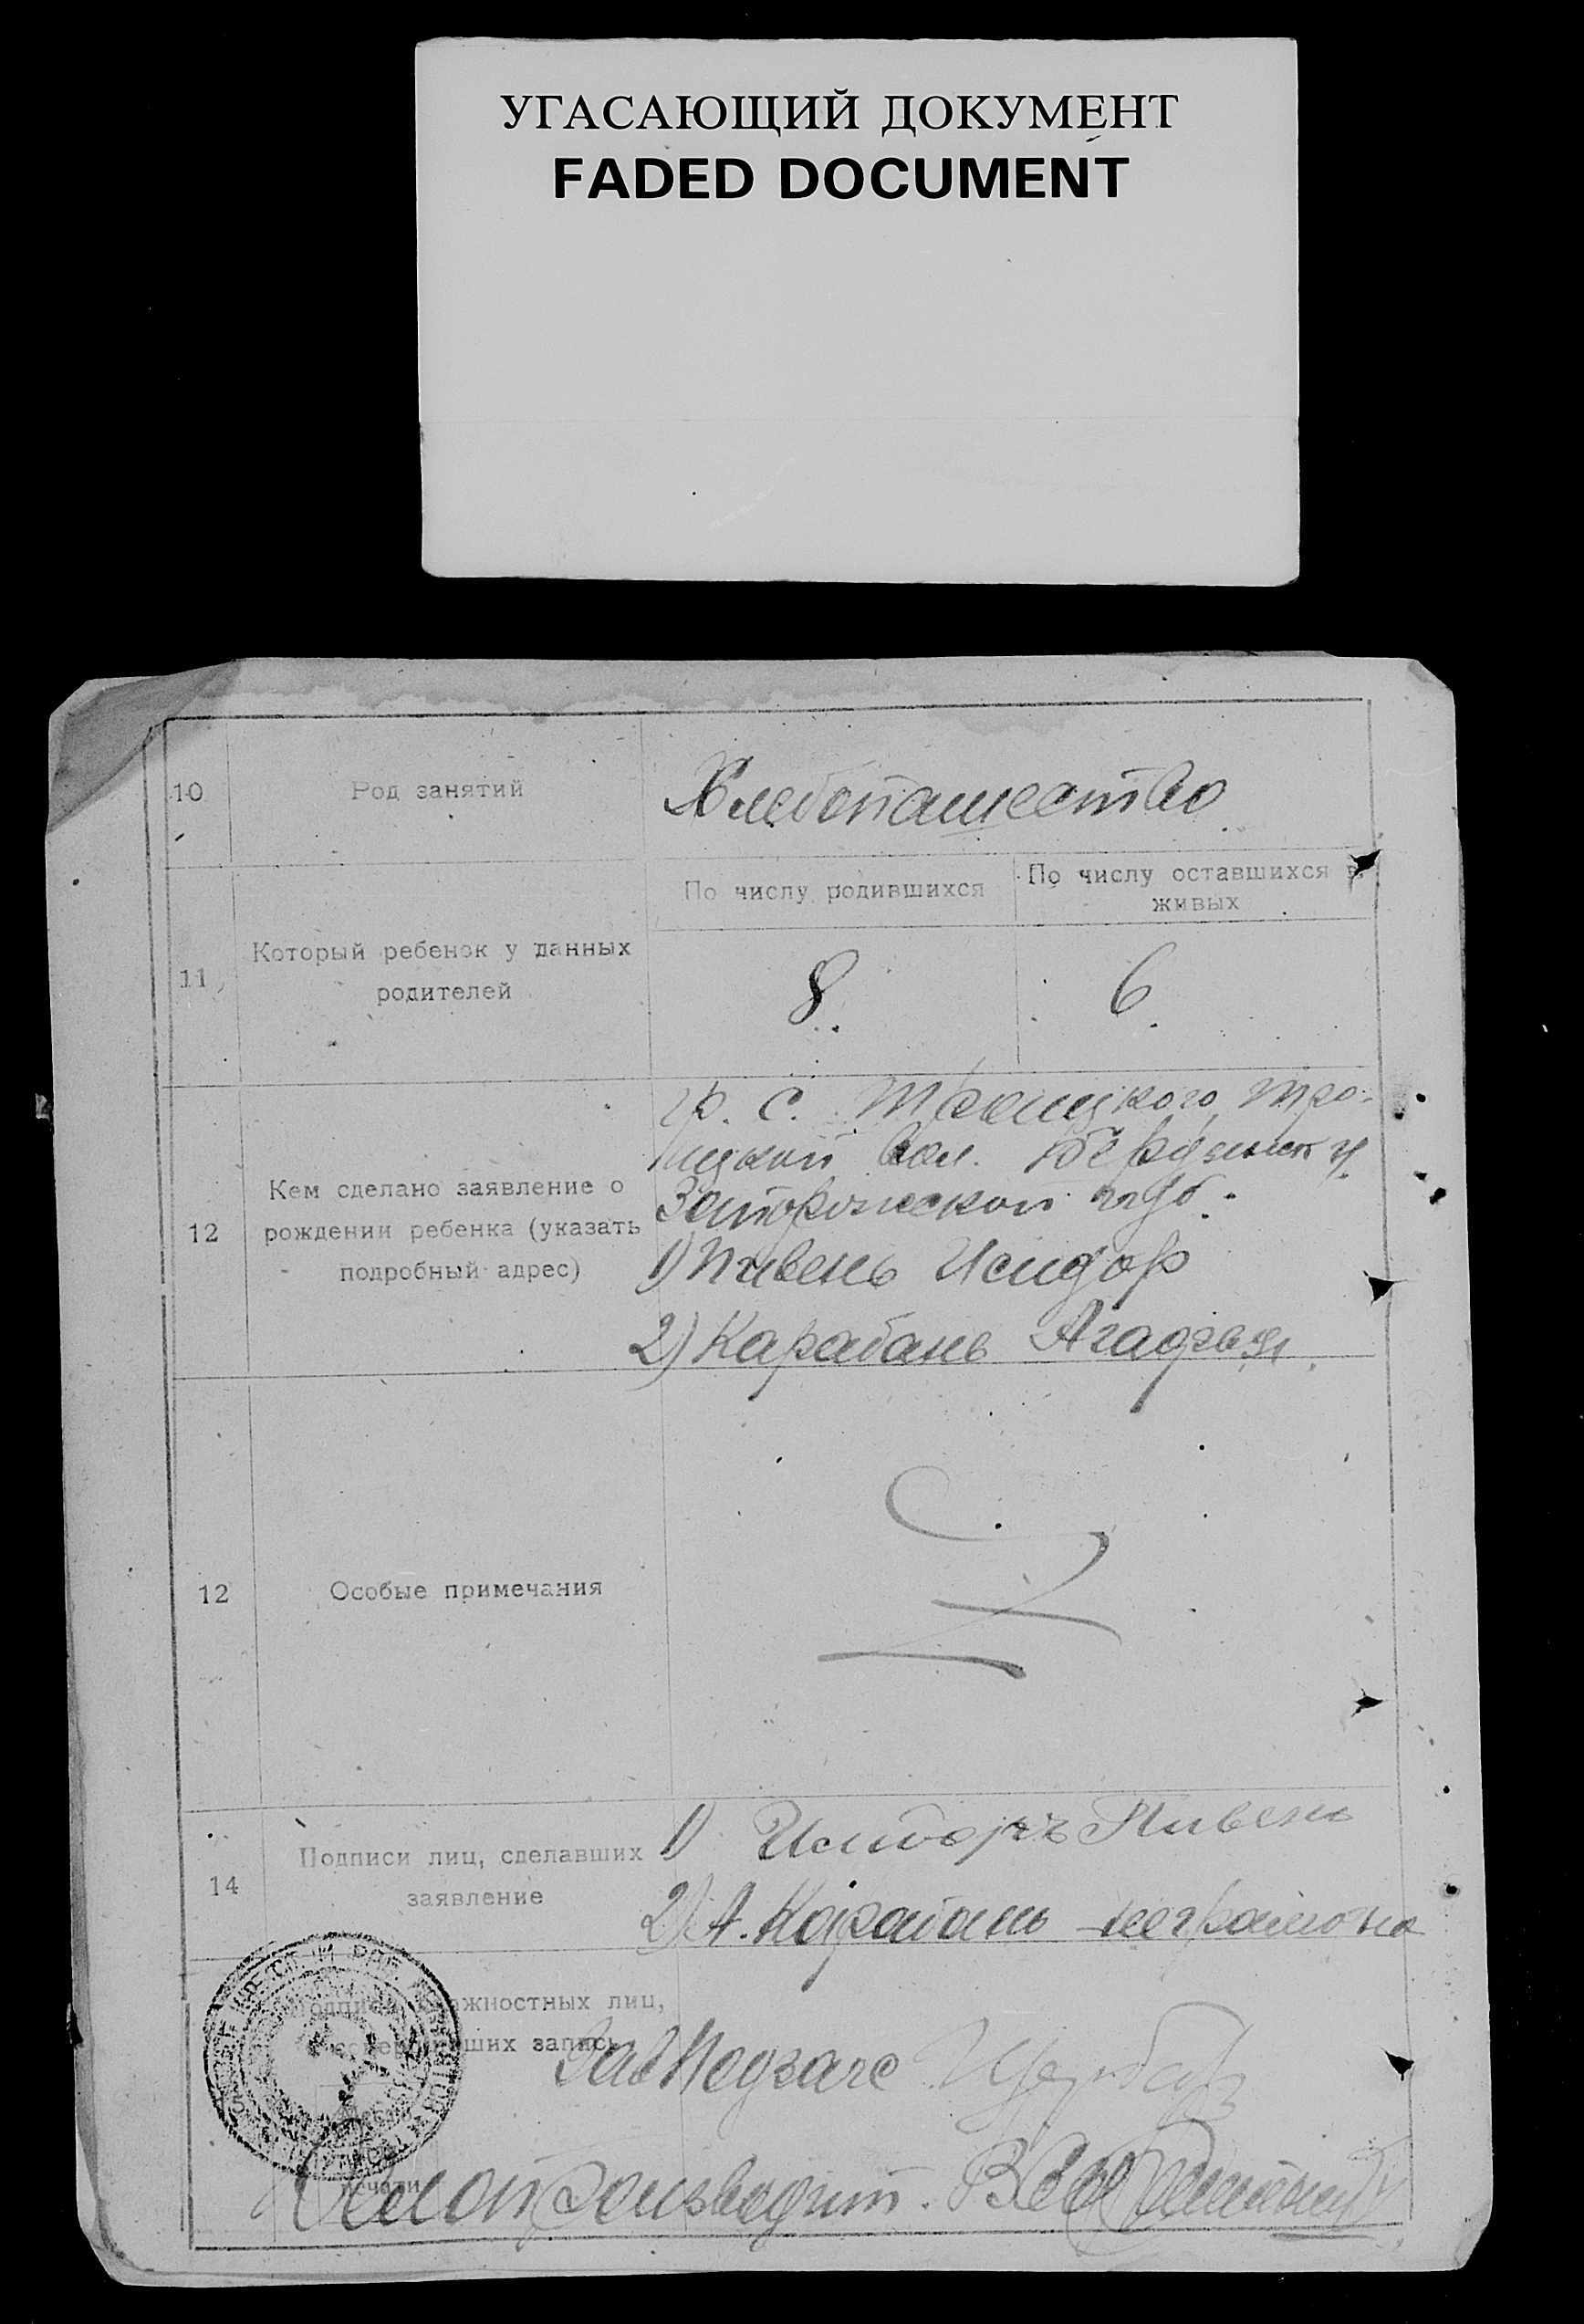 УГАСАЮЩИЙ ДОКУМЕНТ
FADED DOCUMENT
10
Род занятий
Хлебопашество
11
Который ребенок у данных
родителей
По числу родившихся
По числу оставшихся в
живых
8
6
12
Кем сделано заявление о
рождении ребенка (указать
подробный адрес)
гр. с. Троицкого, Тро-
ицкой вол. Бердянск у.
Запорожской губ.
1) Пивень Исидор
2) Карабань Агафья
12
Особые примечания
14
Подписи лиц, сделавших
заявление
1) Исидоръ Пивень
2) А. Карабань неграмотна
должностных лиц,
запись
Зав Подзагс
печати
Делопроизводит.